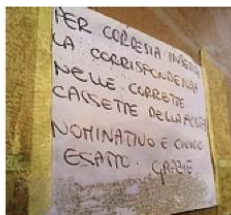 PER CORTESIA INSERIRE
LA CORRISPONDENZA
NELLE CORRETTE
CASSETTE DELLA POSTA
NOMINATIVO E CIVICO
ESATTO. GRAZIE